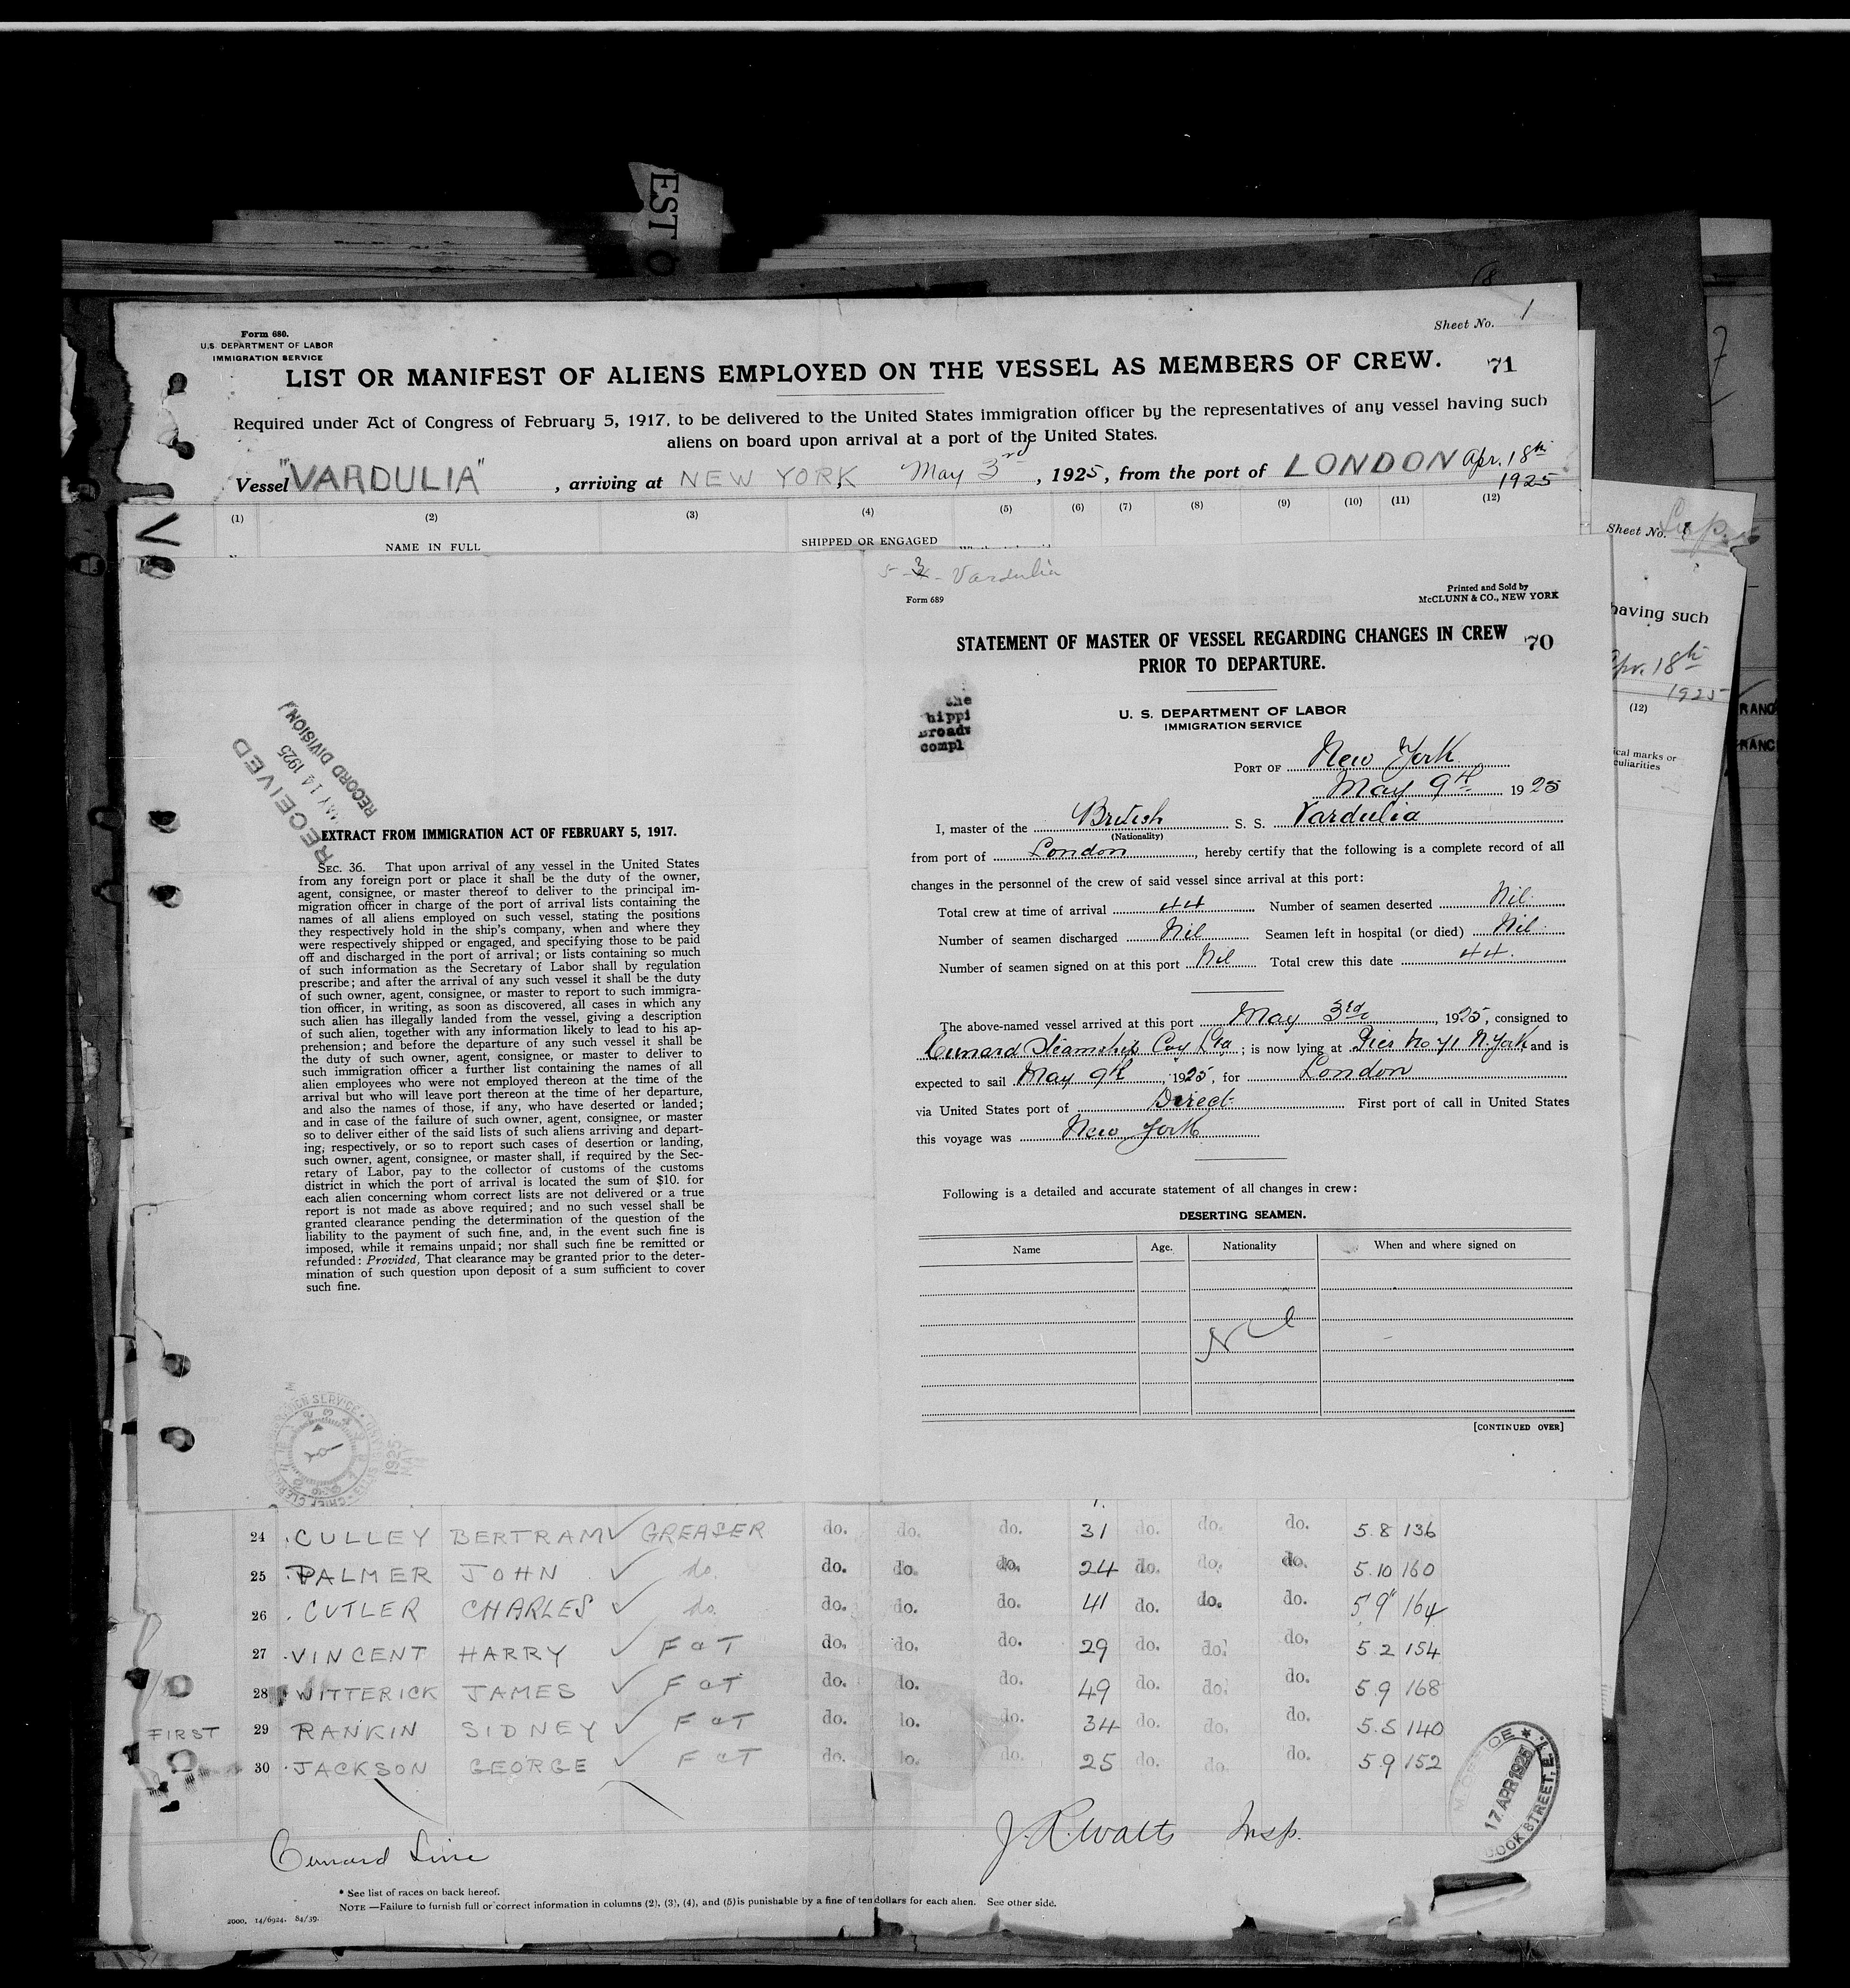 EST O
Form 680.
U.S. DEPARTMENT OF LABOR
IMMIGRATION SERVICE
Sheet No. 1
LIST OR MANIFEST OF ALIENS EMPLOYED ON THE VESSEL AS MEMBERS OF CREW.
71
Required under Act of Congress of February 5, 1917, to be delivered to the United States immigration officer by the representatives of any vessel having such
aliens on board upon arrival at a port of the United States.
Vessel "VARDULIA", arriving at NEW YORK May 3rd, 1925, from the port of LONDON Apr. 18th
1925
(1) (2) (3) (4) (5) (6) (7) (8) (9) (10) (11) (12)
NAME IN FULL SHIPPED OR ENGAGED
Sheet No.
having such
Apr. 18th
1925
(12)
ical marks or
culiarities
RECEIVED
MAY 14 1925
RECORD DIVISION
EXTRACT FROM IMMIGRATION ACT OF FEBRUARY 5, 1917.
SEC. 36. That upon arrival of any vessel in the United States
from any foreign port or place it shall be the duty of the owner,
agent, consignee, or master thereof to deliver to the principal im-
migration officer in charge of the port of arrival lists containing the
names of all aliens employed on such vessel, stating the positions
they respectively hold in the ship's company, when and where they
were respectively shipped or engaged, and specifying those to be paid
off and discharged in the port of arrival; or lists containing so much
of such information as the Secretary of Labor shall by regulation
prescribe; and after the arrival of any such vessel it shall be the duty
of such owner, agent, consignee, or master to report to such immigra-
tion officer, in writing, as soon as discovered, all cases in which any
such alien has illegally landed from the vessel, giving a description
of such alien, together with any information likely to lead to his ap-
prehension; and before the departure of any such vessel it shall be
the duty of such owner, agent, consignee, or master to deliver to
such immigration officer a further list containing the names of all
alien employees who were not employed thereon at the time of the
arrival but who will leave port thereon at the time of her departure,
and also the names of those, if any, who have deserted or landed;
and in case of the failure of such owner, agent, consignee, or master
so to deliver either of the said lists of such aliens arriving and depart-
ing, respectively, or so to report such cases of desertion or landing,
such owner, agent, consignee, or master shall, if required by the Sec-
retary of Labor, pay to the collector of customs of the customs
district in which the port of arrival is located the sum of $10. for
each alien concerning whom correct lists are not delivered or a true
report is not made as above required; and no such vessel shall be
granted clearance pending the determination of the question of the
liability to the payment of such fine, and, in the event such fine is
imposed, while it remains unpaid; nor shall such fine be remitted or
refunded: Provided, That clearance may be granted prior to the deter-
mination of such question upon deposit of a sum sufficient to cover
such fine.
5-3- Vardulia
Form 689
Printed and Sold by
McCLUNN & CO., NEW YORK
STATEMENT OF MASTER OF VESSEL REGARDING CHANGES IN CREW
PRIOR TO DEPARTURE.
70
the
hippi
Broadw
compl
U. S. DEPARTMENT OF LABOR
IMMIGRATION SERVICE
PORT OF New York
May 9th 1925
I, master of the British S. S. Vardulia
(Nationality)
from port of London, hereby certify that the following is a complete record of all
changes in the personnel of the crew of said vessel since arrival at this port:
Total crew at time of arrival 44 Number of seamen deserted Nil.
Number of seamen discharged Nil Seamen left in hospital (or died) Nil.
Number of seamen signed on at this port Nil Total crew this date 44.
The above-named vessel arrived at this port May 3rd, 1925, consigned to
Cunard Steamship Coy Ltd; is now lying at Pier No 71 N. York and is
expected to sail May 9th, 1925, for London
via United States port of Direct. First port of call in United States
this voyage was New York
Following is a detailed and accurate statement of all changes in crew:
DESERTING SEAMEN.
Name Age. Nationality When and where signed on
Nil
[CONTINUED OVER]
24 CULLEY BERTRAM GREASER do. do. do. 31 do. do. do. 5.8 136
25 PALMER JOHN do. do. do. do. 24 do. do. do. 5.10 160
26 CUTLER CHARLES do. do. do. do. 41 do. do. do. 5'9" 164
27 VINCENT HARRY F&T do. do. do. 29 do. do. do. 5.2 154
28 WITTERICK JAMES F&T do. do. do. 49 do. do. do. 5.9 168
FIRST 29 RANKIN SIDNEY F&T do. do. do. 34 do. do. do. 5.5 140
30 JACKSON GEORGE F&T do. do. do. 25 do. do. do. 5.9 152
17 APR 1925
Cunard Line
J. R. Watts Insp.
* See list of races on back hereof.
NOTE —Failure to furnish full or correct information in columns (2), (3), (4), and (5) is punishable by a fine of ten dollars for each alien. See other side.
2000, 14/6924. 84/39.